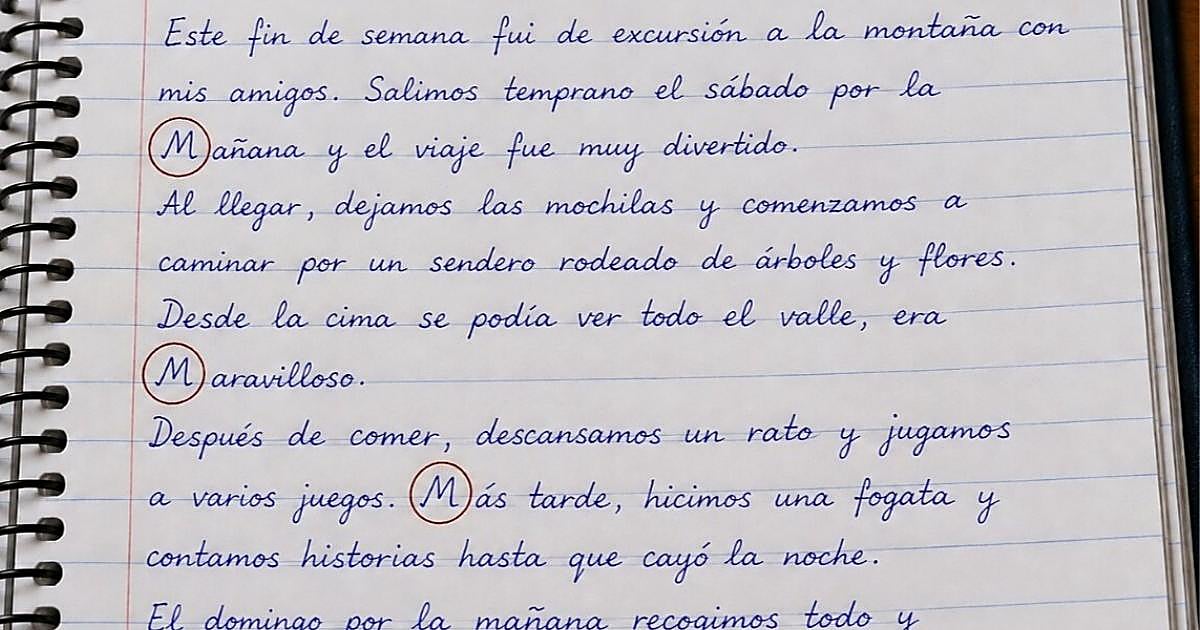 Este fin de semana fui de excursión a la montaña con
mis amigos. Salimos temprano el sábado por la
Mañana y el viaje fue muy divertido.
Al llegar, dejamos las mochilas y comenzamos a
caminar por un sendero rodeado de árboles y flores.
Desde la cima se podía ver todo el valle, era
Maravilloso.
Después de comer, descansamos un rato y jugamos
a varios juegos. Más tarde, hicimos una fogata y
contamos historias hasta que cayó la noche.
El domingo por la mañana recogimos todo y